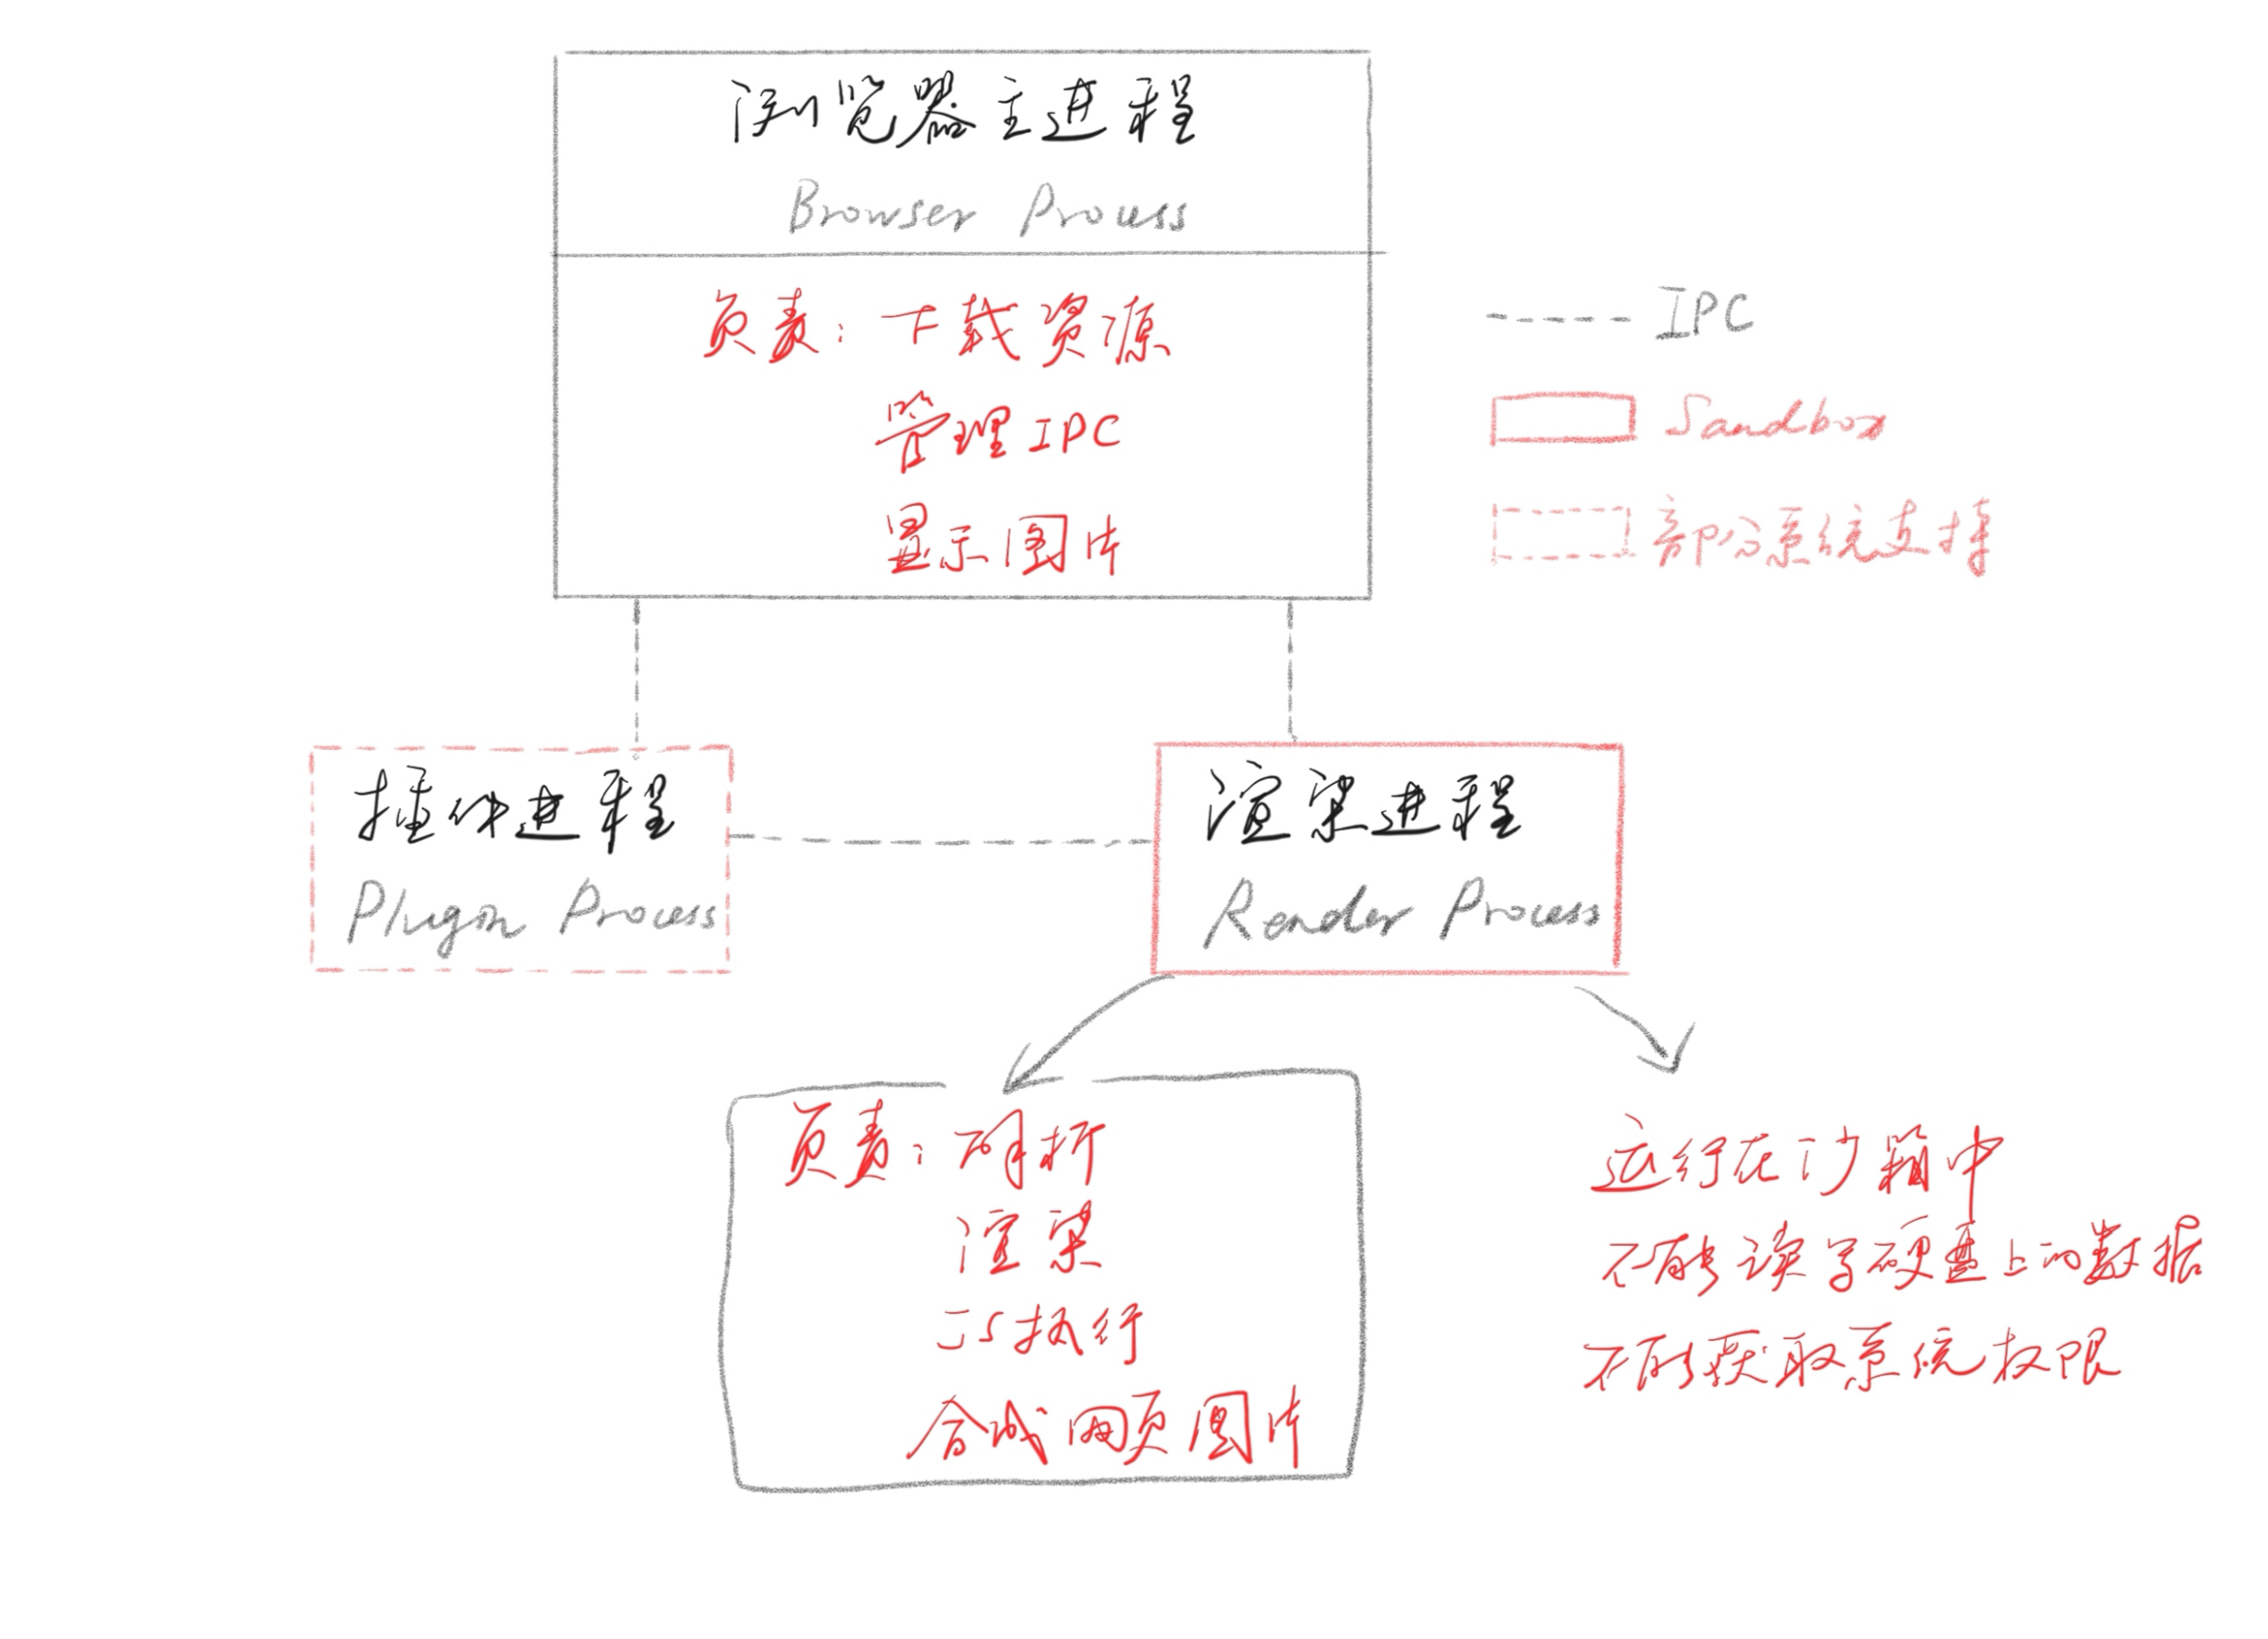 浏览器主进程
Browser Process
负责：下载资源
管理IPC
显示图片
IPC
Sandbox
部分系统支持
插件进程
Plugin Process
渲染进程
Render Process
负责：解析
渲染
JS执行
合成网页图片
运行在沙箱中
不能读写硬盘上的数据
不能获取系统权限